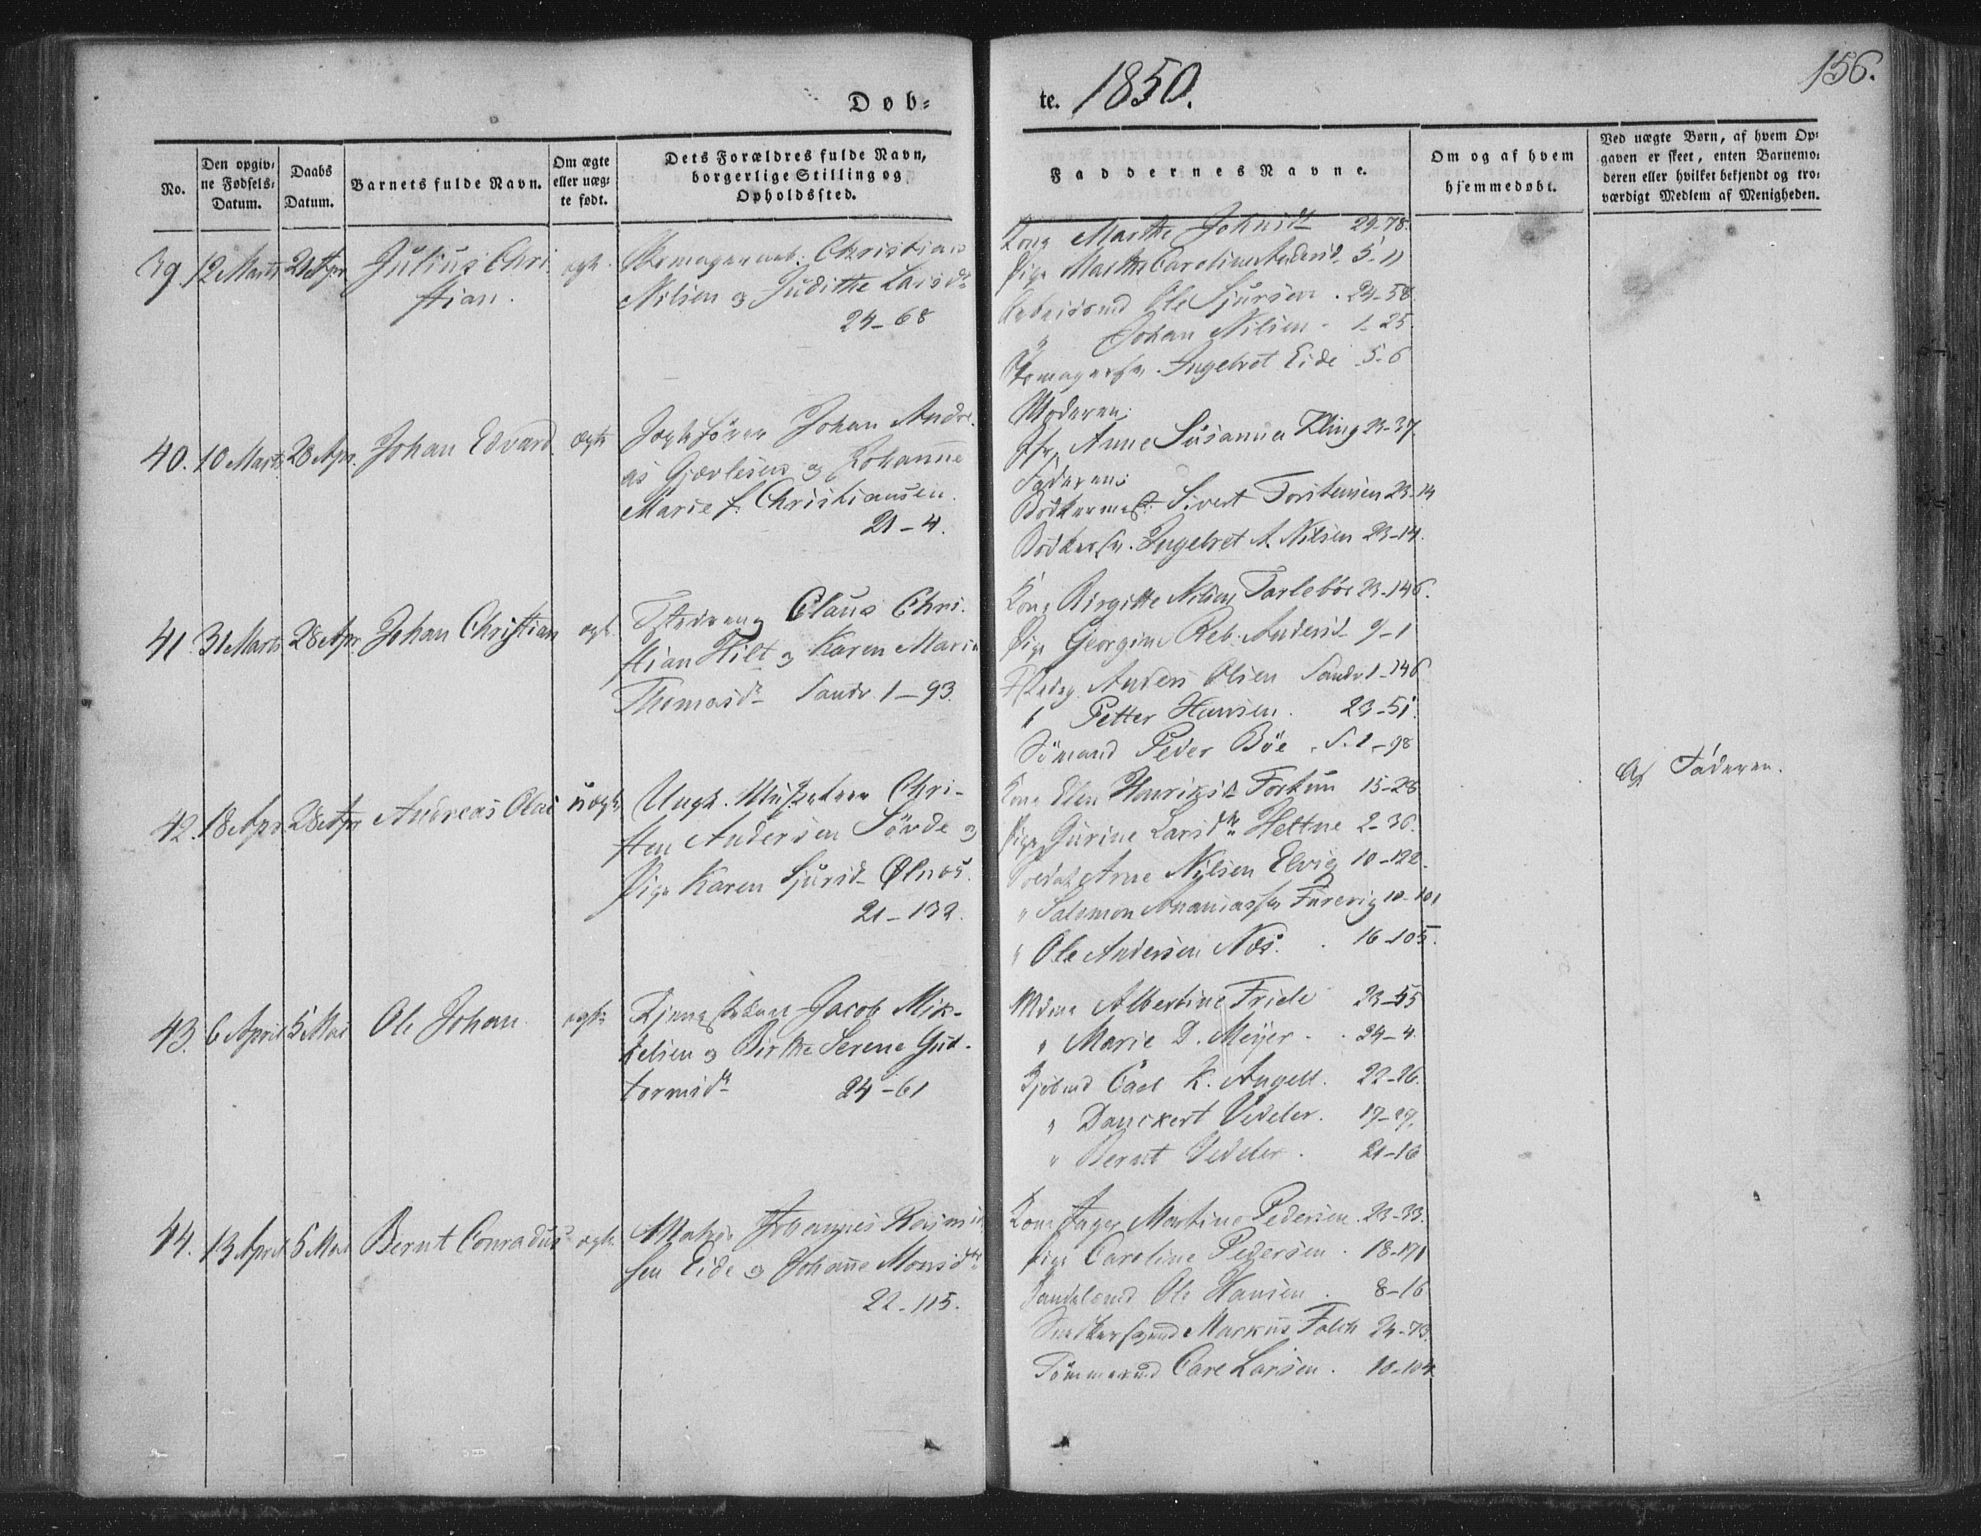 Døb=
te. 1850.
156.
No.
Den opgiv=
ne Fødsels=
Datum.
Daabs
Datum.
Barnets fulde Navn.
Om ægte
eller uæg=
te født.
Dets Forældres fulde Navn,
borgerlige Stilling og
Opholdssted.
Faddernes Navne.
Om og af hvem
hjemmedøbt.
Ved uægte Børn, af hvem Op=
gaven er skeet, enten Barnemo=
deren eller hvilket bekjendt og tro=
værdigt Medlem af Menigheden.
39. 12 Marts 21 Apr. Julius Chri
stian.
ægte
Skomagersvend. Christian
Nilsen og Judithe Larsdr
24-68
Kone Marthe Johnsdr 29-78.
Pige Marthe Caroline Andersdr 5-11
Arbeidsmd Ole Sjursen. 24-58.
" Johan Nilsen. 1-25.
Skomagersv. Ingebret Eide 5-6
40. 10 Marts 28 Apr. Johan Edvard
ægte
Johan Andre
as Gjævlesen og Johanne
Marie f. Christiansen.
21-4.
Moderen.
Anne Susanna Kling 23-37.
Faderen.
Bødkermest. Sivert Torstensen 23-14
Bødkersv. Ingebret A. Nilsen 23-14.
41. 31 Marts 28 Apr. Johan Christian
ægte
Claus Chri.
stian Hilt og Karen Marie
Thomasdr Sandv. 1-93.
Kone Birgitte Nilsen Tarlebøe 23-146.
Pige Georgine Reb. Andersdr 9-1
Anders Olsen Sandv. 1-146
" Petter Hansen. 23-51.
Sømand Peder Bøe. S. 1-98
42. 18 Apr. 28 Apr. Andreas Olai
uægte
Ungk. Musketeer Chri-
sten Andersen Sørde og
Pige Karen Sjursdr Ølnæs.
21-132.
Kone Elen Henriksdr Fortun 15-28
Pige Gurine Larsdr Heltne 2-36.
Soldat Arne Nilsen Elvig 10-122.
" Salomon Ananiassen Furevig 10-101
" Ole Andersen Næs. 16-105.
Af Faderen.
43. 6 April 5 Mai Ole Johan
ægte
Jacob Mik-
kelsen og Birthe Serene Gut-
tormsdr 24-61
Mdme Albertine Friele 23-55
" Marie D. Meyer. 24-4.
Kjøbmd Carl K. Angell. 22-26.
" Danckert Vedeler. 17-27.
" Bernt Vedeler. 21-16
44. 13 April 5 Mai Bernt Conradus
ægte
Johannes Rasmus
sen Eide og Johanne Monsdtr
22-115.
Kone Inger Martine Pedersen. 23-33.
Pige Caroline Pedersen. 18-171
Ole Hansen. 8-16
Snedkersvend Markus Falch 24-73.
Tømmermd Care Larsen. 10-104